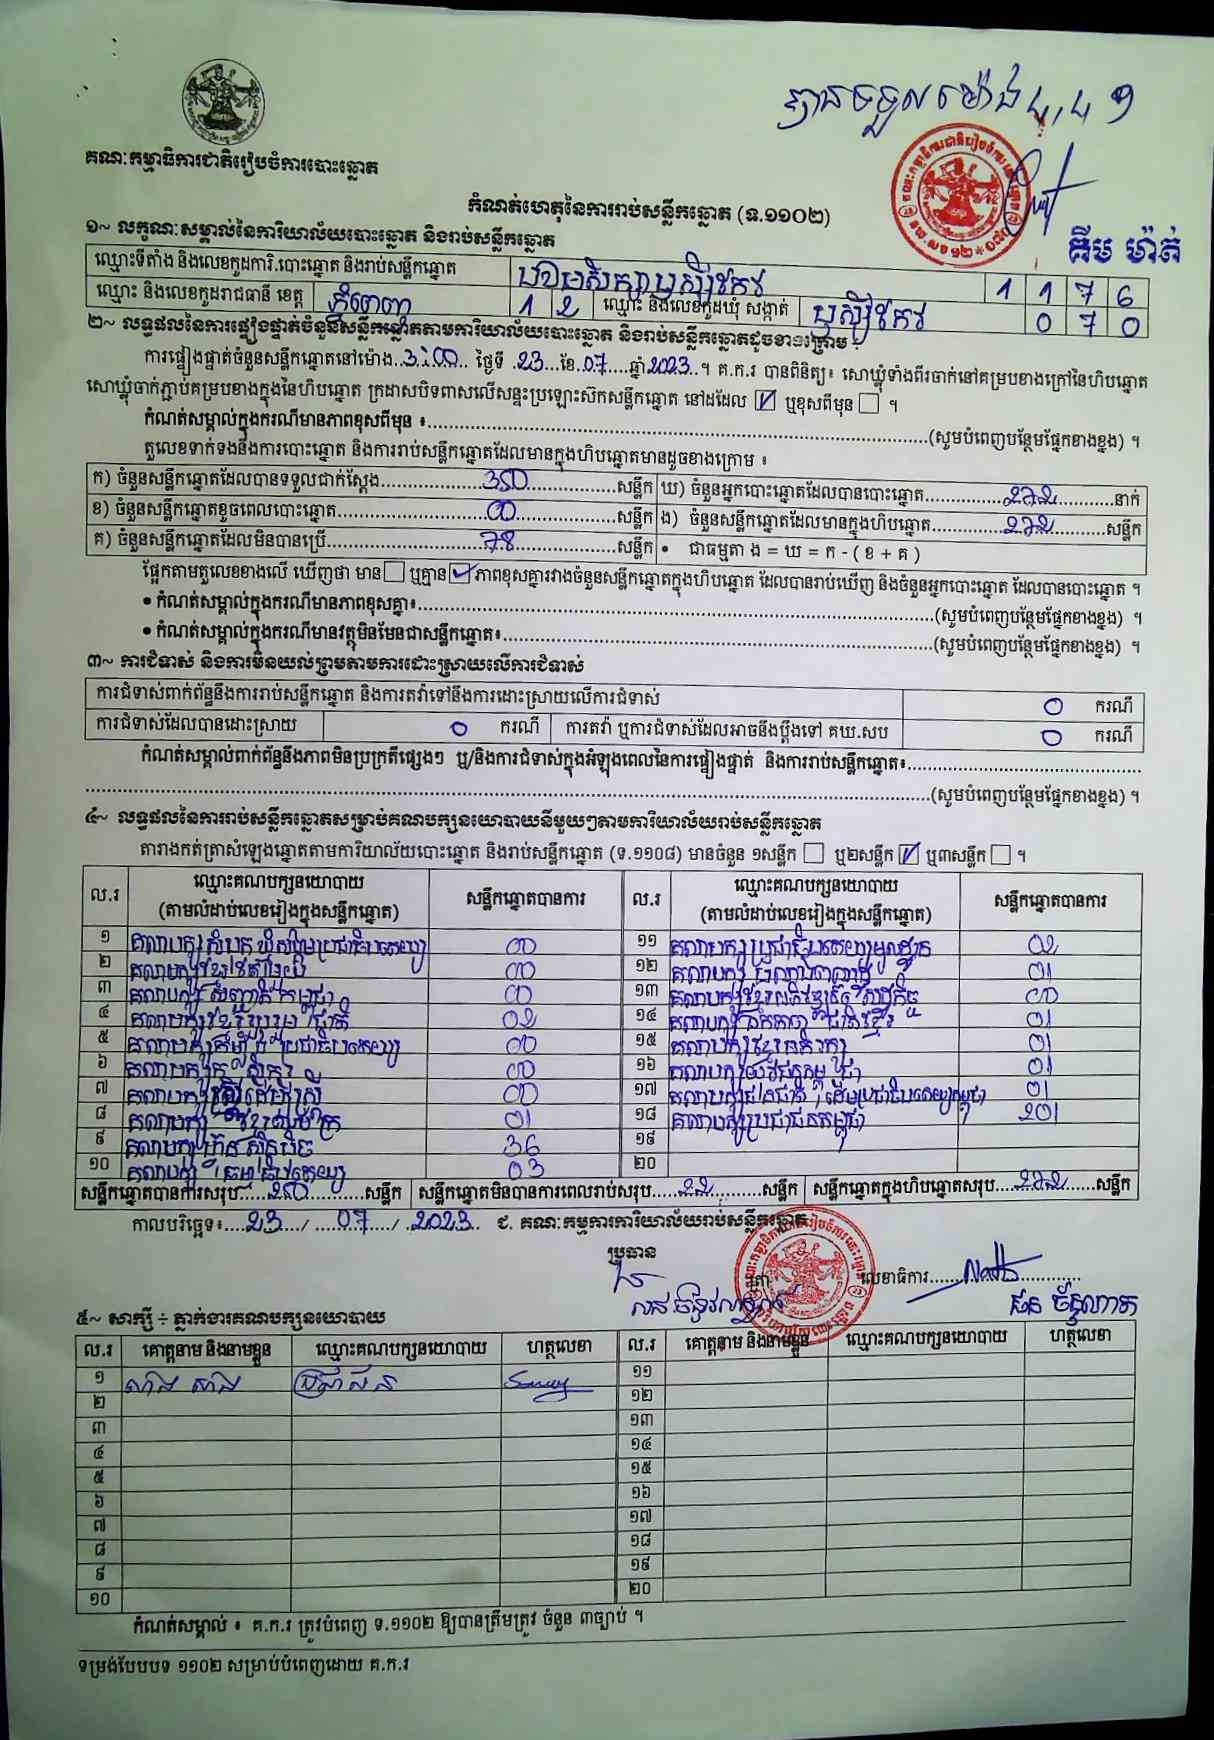 បានទទួលម៉ោង ៤,៤១
គណៈកម្មាធិការជាតិរៀបចំការបោះឆ្នោត
គឹម ម៉ាត់
កំណត់ហេតុនៃការរាប់សន្លឹកឆ្នោត (ទ.១១០២)
១~ លក្ខណៈសម្គាល់នៃការិយាល័យបោះឆ្នោត និងរាប់សន្លឹកឆ្នោត
ឈ្មោះទីតាំង និងលេខកូដការិ.បោះឆ្នោត និងរាប់សន្លឹកឆ្នោត បឋមសិក្សាឫស្សីកែវ 1 1 7 6
ឈ្មោះ និងលេខកូដរាជធានី ខេត្ត ភ្នំពេញ 1 2 ឈ្មោះ និងលេខកូដឃុំ សង្កាត់ ឫស្សីកែវ 0 7 0
២~ លទ្ធផលនៃការផ្ទៀងផ្ទាត់ចំនួនសន្លឹកឆ្នោតតាមការិយាល័យបោះឆ្នោត និងរាប់សន្លឹកឆ្នោតដូចខាងក្រោម ៖
ការផ្ទៀងផ្ទាត់ចំនួនសន្លឹកឆ្នោតនៅម៉ោង 3:00 ថ្ងៃទី 23 ខែ 07 ឆ្នាំ 2023 ។ គ.ក.រ បានពិនិត្យ៖ សោឃ្លុំទាំងពីរចាក់នៅគម្របខាងក្រៅនៃហិបឆ្នោត
សោឃ្លុំចាក់ភ្ជាប់គម្របខាងក្នុងនៃហិបឆ្នោត ក្រដាសបិទពាសលើសន្ទះប្រឡោះស៊កសន្លឹកឆ្នោត នៅដដែល ☑ ឬខុសពីមុន ☐ ។
កំណត់សម្គាល់ក្នុងករណីមានភាពខុសពីមុន ៖ (សូមបំពេញបន្ថែមផ្នែកខាងខ្នង) ។
តួលេខទាក់ទងនឹងការបោះឆ្នោត និងការរាប់សន្លឹកឆ្នោតដែលមានក្នុងហិបឆ្នោតមានដូចខាងក្រោម ៖
ក) ចំនួនសន្លឹកឆ្នោតដែលបានទទួលជាក់ស្តែង 350 សន្លឹក ឃ) ចំនួនអ្នកបោះឆ្នោតដែលបានបោះឆ្នោត 272 នាក់
ខ) ចំនួនសន្លឹកឆ្នោតខូចពេលបោះឆ្នោត 00 សន្លឹក ង) ចំនួនសន្លឹកឆ្នោតដែលមានក្នុងហិបឆ្នោត 272 សន្លឹក
គ) ចំនួនសន្លឹកឆ្នោតដែលមិនបានប្រើ 78 សន្លឹក • ជាធម្មតា ង = ឃ = ក - ( ខ + គ )
ផ្អែកតាមតួលេខខាងលើ ឃើញថា មាន ☐ ឬគ្មាន ☑ ភាពខុសគ្នារវាងចំនួនសន្លឹកឆ្នោតក្នុងហិបឆ្នោត ដែលបានរាប់ឃើញ និងចំនួនអ្នកបោះឆ្នោត ដែលបានបោះឆ្នោត ។
• កំណត់សម្គាល់ក្នុងករណីមានភាពខុសគ្នា៖ (សូមបំពេញបន្ថែមផ្នែកខាងខ្នង) ។
• កំណត់សម្គាល់ក្នុងករណីមានវត្ថុមិនមែនជាសន្លឹកឆ្នោត៖ (សូមបំពេញបន្ថែមផ្នែកខាងខ្នង) ។
៣~ ការជំទាស់ និងការមិនយល់ព្រមតាមការដោះស្រាយលើការជំទាស់
ការជំទាស់ពាក់ព័ន្ធនឹងការរាប់សន្លឹកឆ្នោត និងការតវ៉ាទៅនឹងការដោះស្រាយលើការជំទាស់ 0 ករណី
ការជំទាស់ដែលបានដោះស្រាយ 0 ករណី ការតវ៉ា ឬការជំទាស់ដែលអាចនឹងប្តឹងទៅ គឃ.សប 0 ករណី
កំណត់សម្គាល់ពាក់ព័ន្ធនឹងភាពមិនប្រក្រតីផ្សេងៗ ឬ/និងការជំទាស់ក្នុងអំឡុងពេលនៃការផ្ទៀងផ្ទាត់ និងការរាប់សន្លឹកឆ្នោត៖
(សូមបំពេញបន្ថែមផ្នែកខាងខ្នង) ។
៤~ លទ្ធផលនៃការរាប់សន្លឹកឆ្នោតសម្រាប់គណបក្សនយោបាយនីមួយៗតាមការិយាល័យរាប់សន្លឹកឆ្នោត
តារាងកត់ត្រាសំឡេងឆ្នោតតាមការិយាល័យបោះឆ្នោត និងរាប់សន្លឹកឆ្នោត (ទ.១១០៨) មានចំនួន ១សន្លឹក ☐ ឬ២សន្លឹក ☑ ឬ៣សន្លឹក ☐ ។
ល.រ ឈ្មោះគណបក្សនយោបាយ (តាមលំដាប់លេខរៀងក្នុងសន្លឹកឆ្នោត) សន្លឹកឆ្នោតបានការ ល.រ ឈ្មោះគណបក្សនយោបាយ (តាមលំដាប់លេខរៀងក្នុងសន្លឹកឆ្នោត) សន្លឹកឆ្នោតបានការ
១ គណបក្សសំបុកឃ្មុំសង្គមប្រជាធិបតេយ្យ 00 ១១ គណបក្សប្រជាធិបតេយ្យមូលដ្ឋាន 02
២ គណបក្សខ្មែរតែមួយ 00 ១២ គណបក្ស 01
៣ គណបក្សសញ្ជាតិកម្ពុជា 00 ១៣ គណបក្សខ្មែរអភិវឌ្ឍន៍សេដ្ឋកិច្ច 00
៤ គណបក្សខ្មែររួបរួមជាតិ 02 ១៤ គណបក្សឯកភាពជាតិខ្មែរ 01
៥ គណបក្សកម្លាំងប្រជាធិបតេយ្យ 00 ១៥ គណបក្សខ្មែរអភិរក្ស 01
៦ គណបក្សកសិករ 00 ១៦ គណបក្សយុវជនកម្ពុជា 01
៧ គណបក្សស្ត្រីដើម្បីស្ត្រី 00 ១៧ គណបក្សជនជាតិដើមប្រជាធិបតេយ្យកម្ពុជា 01
៨ គណបក្ស 01 ១៨ គណបក្សប្រជាជនកម្ពុជា 201
៩ គណបក្សហ្វ៊ុនស៊ិនប៉ិច 36 ១៩
១០ គណបក្សធម្មាធិបតេយ្យ 03 ២០
សន្លឹកឆ្នោតបានការសរុប 250 សន្លឹក សន្លឹកឆ្នោតមិនបានការពេលរាប់សរុប 22 សន្លឹក សន្លឹកឆ្នោតក្នុងហិបឆ្នោតសរុប 272 សន្លឹក
កាលបរិច្ឆេទ៖ 23 / 07 / 2023 ជ. គណៈកម្មការការិយាល័យរាប់សន្លឹកឆ្នោត
ប្រធាន
លេខាធិការ
៥~ សាក្សី ÷ ភ្នាក់ងារគណបក្សនយោបាយ
ល.រ គោត្តនាម និងនាមខ្លួន ឈ្មោះគណបក្សនយោបាយ ហត្ថលេខា ល.រ គោត្តនាម និងនាមខ្លួន ឈ្មោះគណបក្សនយោបាយ ហត្ថលេខា
១ ប្រជាជន ១១
២ ១២
៣ ១៣
៤ ១៤
៥ ១៥
៦ ១៦
៧ ១៧
៨ ១៨
៩ ១៩
១០ ២០
កំណត់សម្គាល់ ៖ គ.ក.រ ត្រូវបំពេញ ទ.១១០២ ឱ្យបានត្រឹមត្រូវ ចំនួន ៣ច្បាប់ ។
ទម្រង់បែបបទ ១១០២ សម្រាប់បំពេញដោយ គ.ក.រ